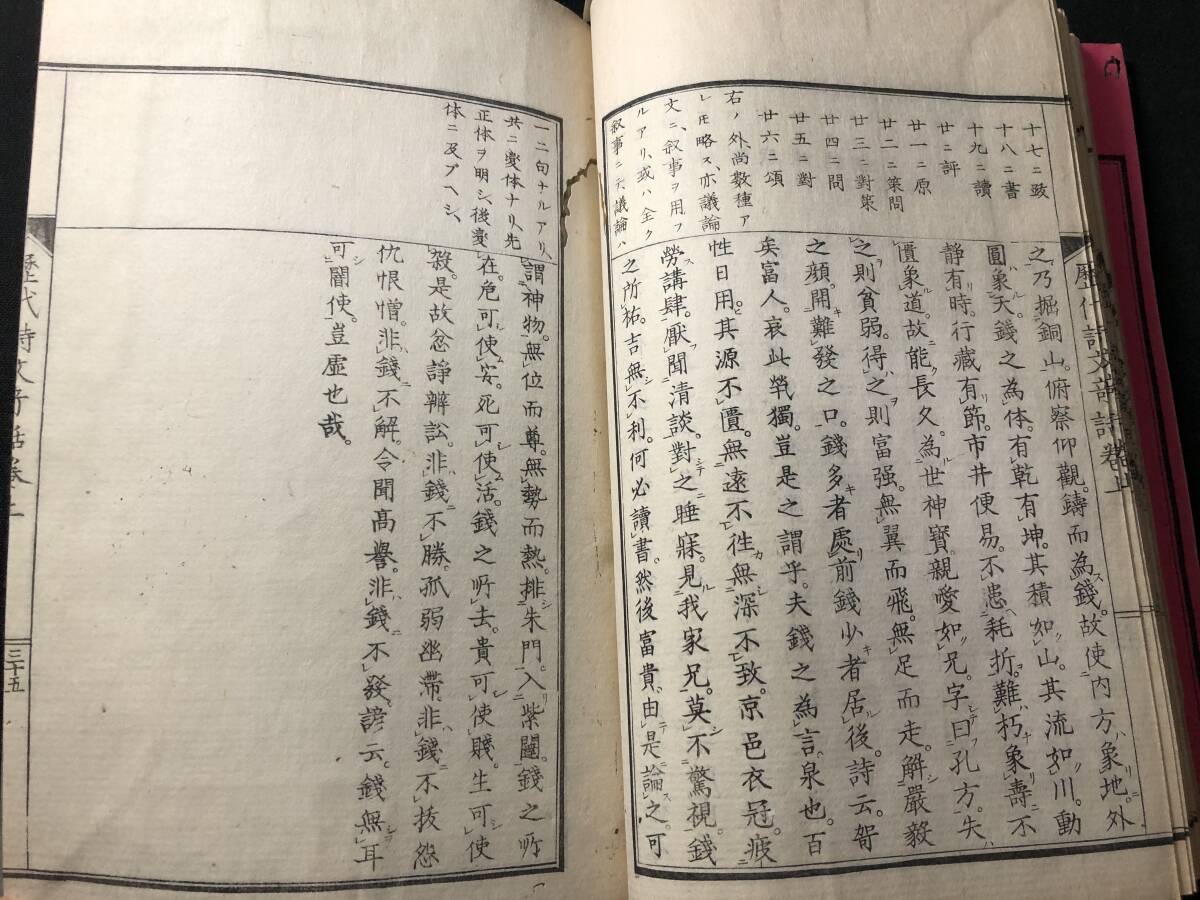 十七ニ跋
十八ニ書
十九ニ讀
廿ニ評
廿一ニ原
廿二ニ策問
廿三ニ對策
廿四ニ問
廿五ニ對
廿六ニ頌
右ノ外尚數種ア
レ𪜈略ス、亦議論
文ニ、叙事ヲ用フ
ルアリ、或ハ全ク
叙事ニテ議論ハ
之乃掘銅山。俯察仰觀。鑄而為錢。故使内方象地。外
圓象天。錢之為体。有乾有坤。其積如山。其流如川。動
靜有時。行藏有節。市井便易。不患耗折。難朽象壽。不
匱象道。故能長久。為世神寶。親愛如兄。字曰孔方。失
之則貧弱。得之則富强。無翼而飛。無足而走。解嚴毅
之顔。開難發之口。錢多者處前。錢少者居後。詩云。哿
矣富人。哀此煢獨。豈是之謂乎。夫錢之為言泉也。百
性日用。其源不匱。無遠不徃。無深不致。京邑衣冠。疲
勞講肆。厭聞清談。對之睡寐。見我家兄。莫不驚視。錢
之所祐。吉無不利。何必讀書。然後富貴。由是論之。可
一二句ナルアリ、
共ニ變体ナリ、先
正体ヲ明シ、後變
体ニ及ブヘシ、
謂神物。無位而尊。無勢而熱。排朱門。入紫闥。錢之所
在。危可使安。死可使活。錢之所去。貴可使賤。生可使
殺。是故忿諍辨訟。非錢不勝。孤弱幽滯。非錢不拔。怨
仇恨憎。非錢不解。令聞高譽。非錢不發。諺云。錢無耳
可闇使。豈虛也哉。
三十五